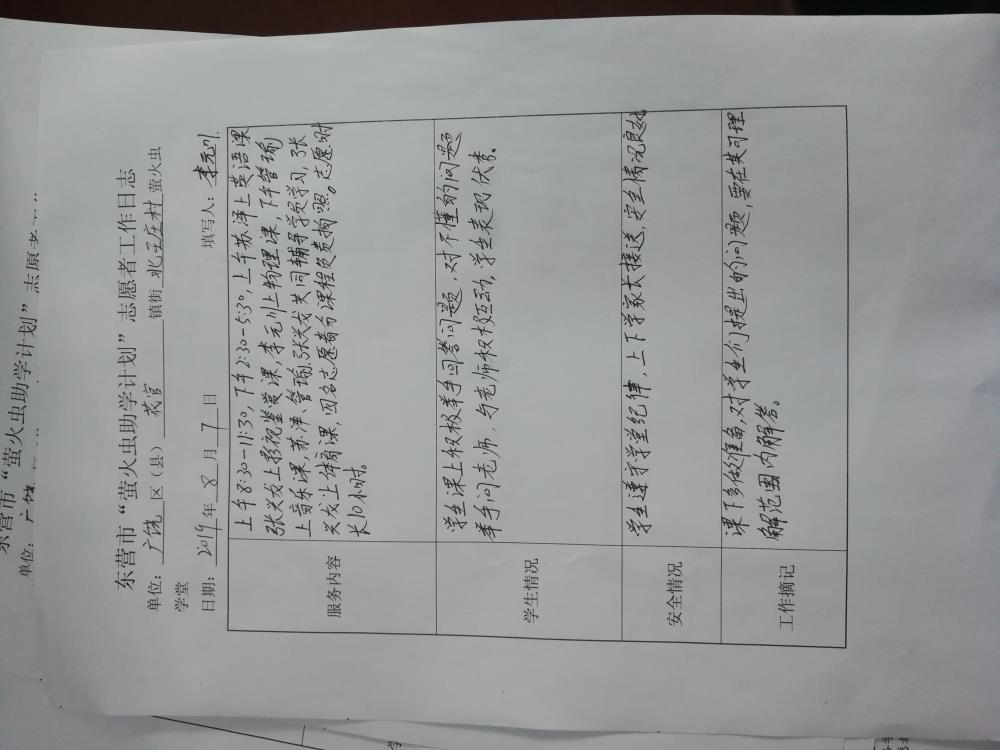 东营市“萤火虫助学计划”志愿者工作日志
单位：广饶区（县）花官镇街北王庄村萤火虫
学堂
日期：2019年8月7日 填写人：李元川
服务内容
上午8:30-11:30，下午2:30-5:30，上午苏洋上英语课
张兴戈上影视鉴赏课，李元川上物理课，下午管瑜
上音乐课，苏洋、管瑜、张兴戈共同辅导学校学习，张
兴戈上体育课，四名志愿者为课程负责拍照。志愿时
长10小时。
学生情况
学生课上积极举手回答问题，对不懂的问题
举手问老师，与老师积极互动，学生表现优秀。
安全情况
学生遵守学堂纪律，上下学家长接送，安全情况良好
工作摘记
课下多做准备，对学生们提出的问题，要在其可理
解范围内解答。
东营市“萤火虫助学计划”志愿者
单位：广饶